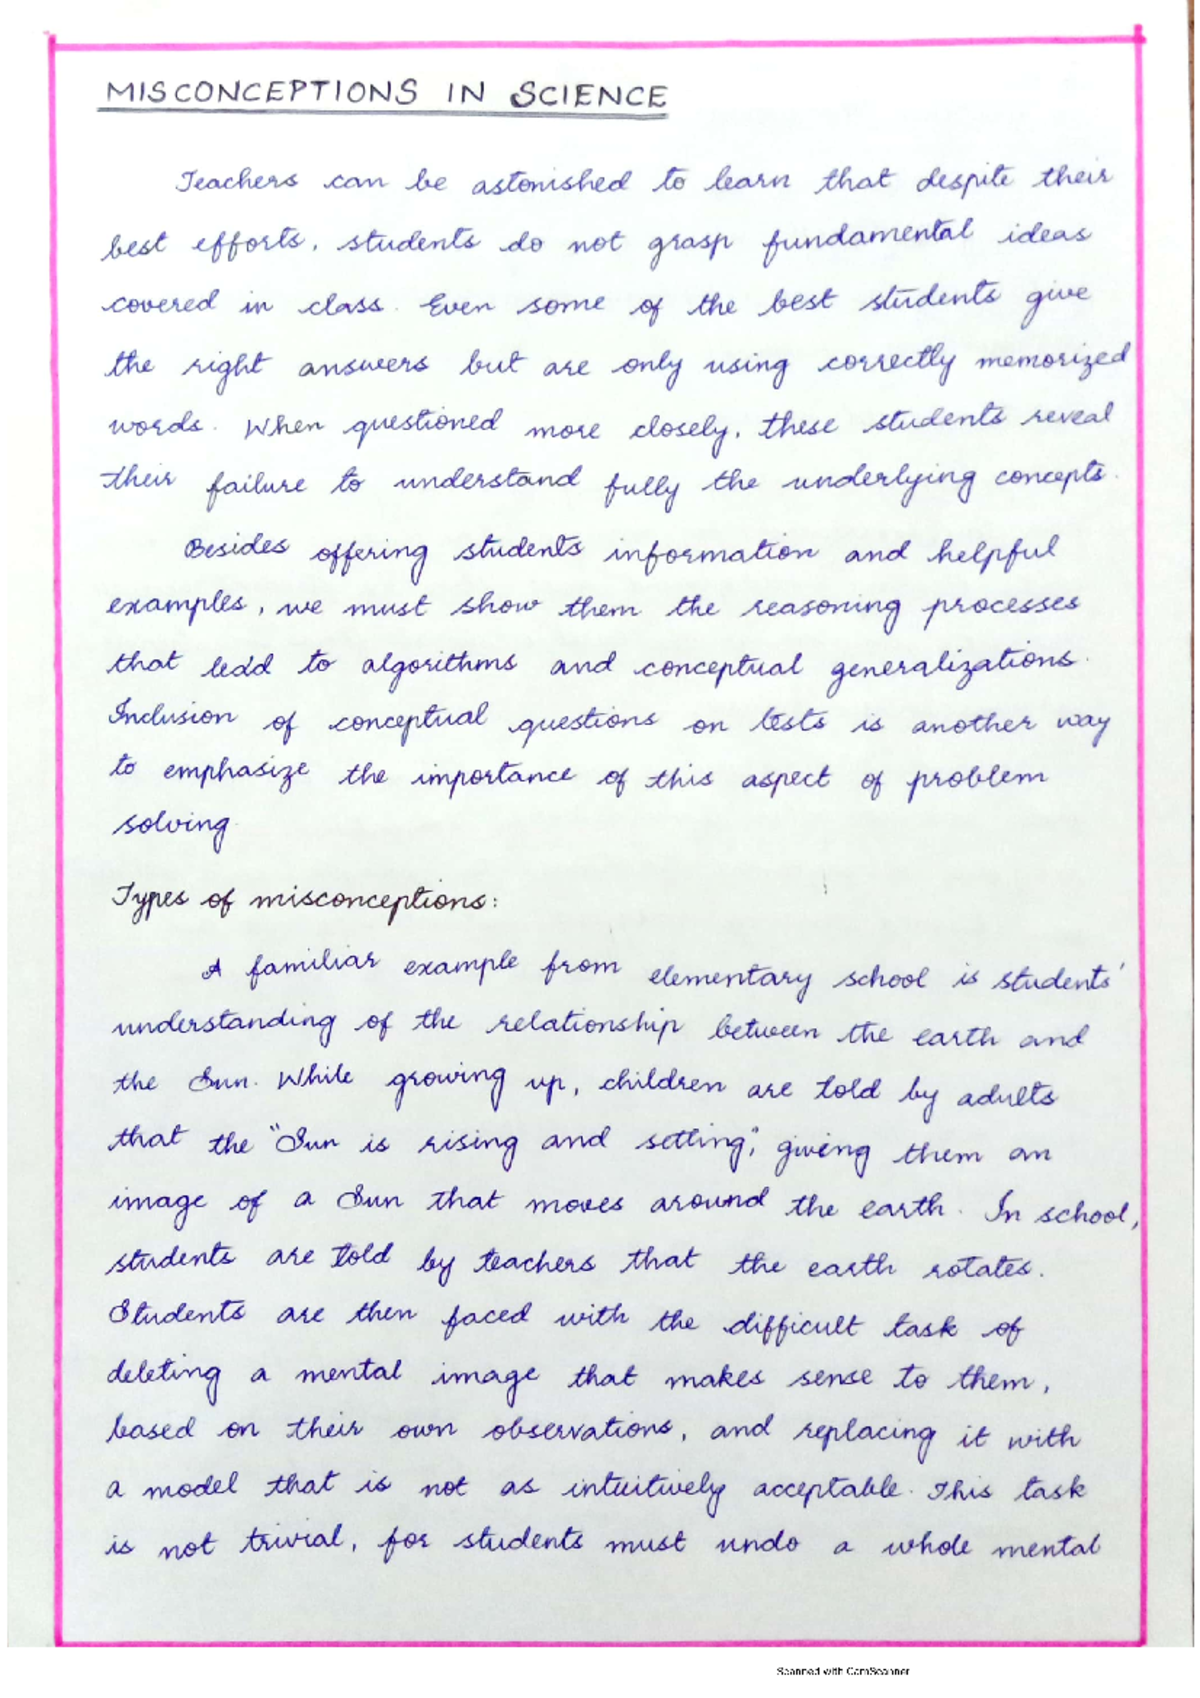 MISCONCEPTIONS IN SCIENCE
Teachers can be astonished to learn that despite their
best efforts, students do not grasp fundamental ideas
covered in class. Even some of the best students give
the right answers but are only using correctly memorized
words. When questioned more closely, these students reveal
their failure to understand fully the underlying concepts.
Besides offering students information and helpful
examples, we must show them the reasoning processes
that lead to algorithms and conceptual generalizations.
Inclusion of conceptual questions on tests is another way
to emphasize the importance of this aspect of problem
solving.
Types of misconceptions:
A familiar example from elementary school is students'
understanding of the relationship between the earth and
the Sun. While growing up, children are told by adults
that the "Sun is rising and setting," giving them an
image of a Sun that moves around the earth. In school,
students are told by teachers that the earth rotates.
Students are then faced with the difficult task of
deleting a mental image that makes sense to them,
based on their own observations, and replacing it with
a model that is not as intuitively acceptable. This task
is not trivial, for students must undo a whole mental
Scanned with CamScanner